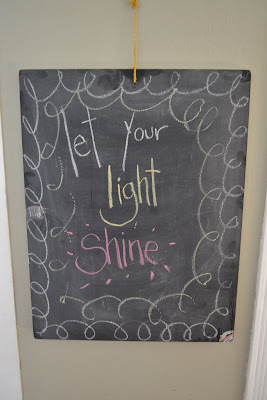 let your
light
Shine